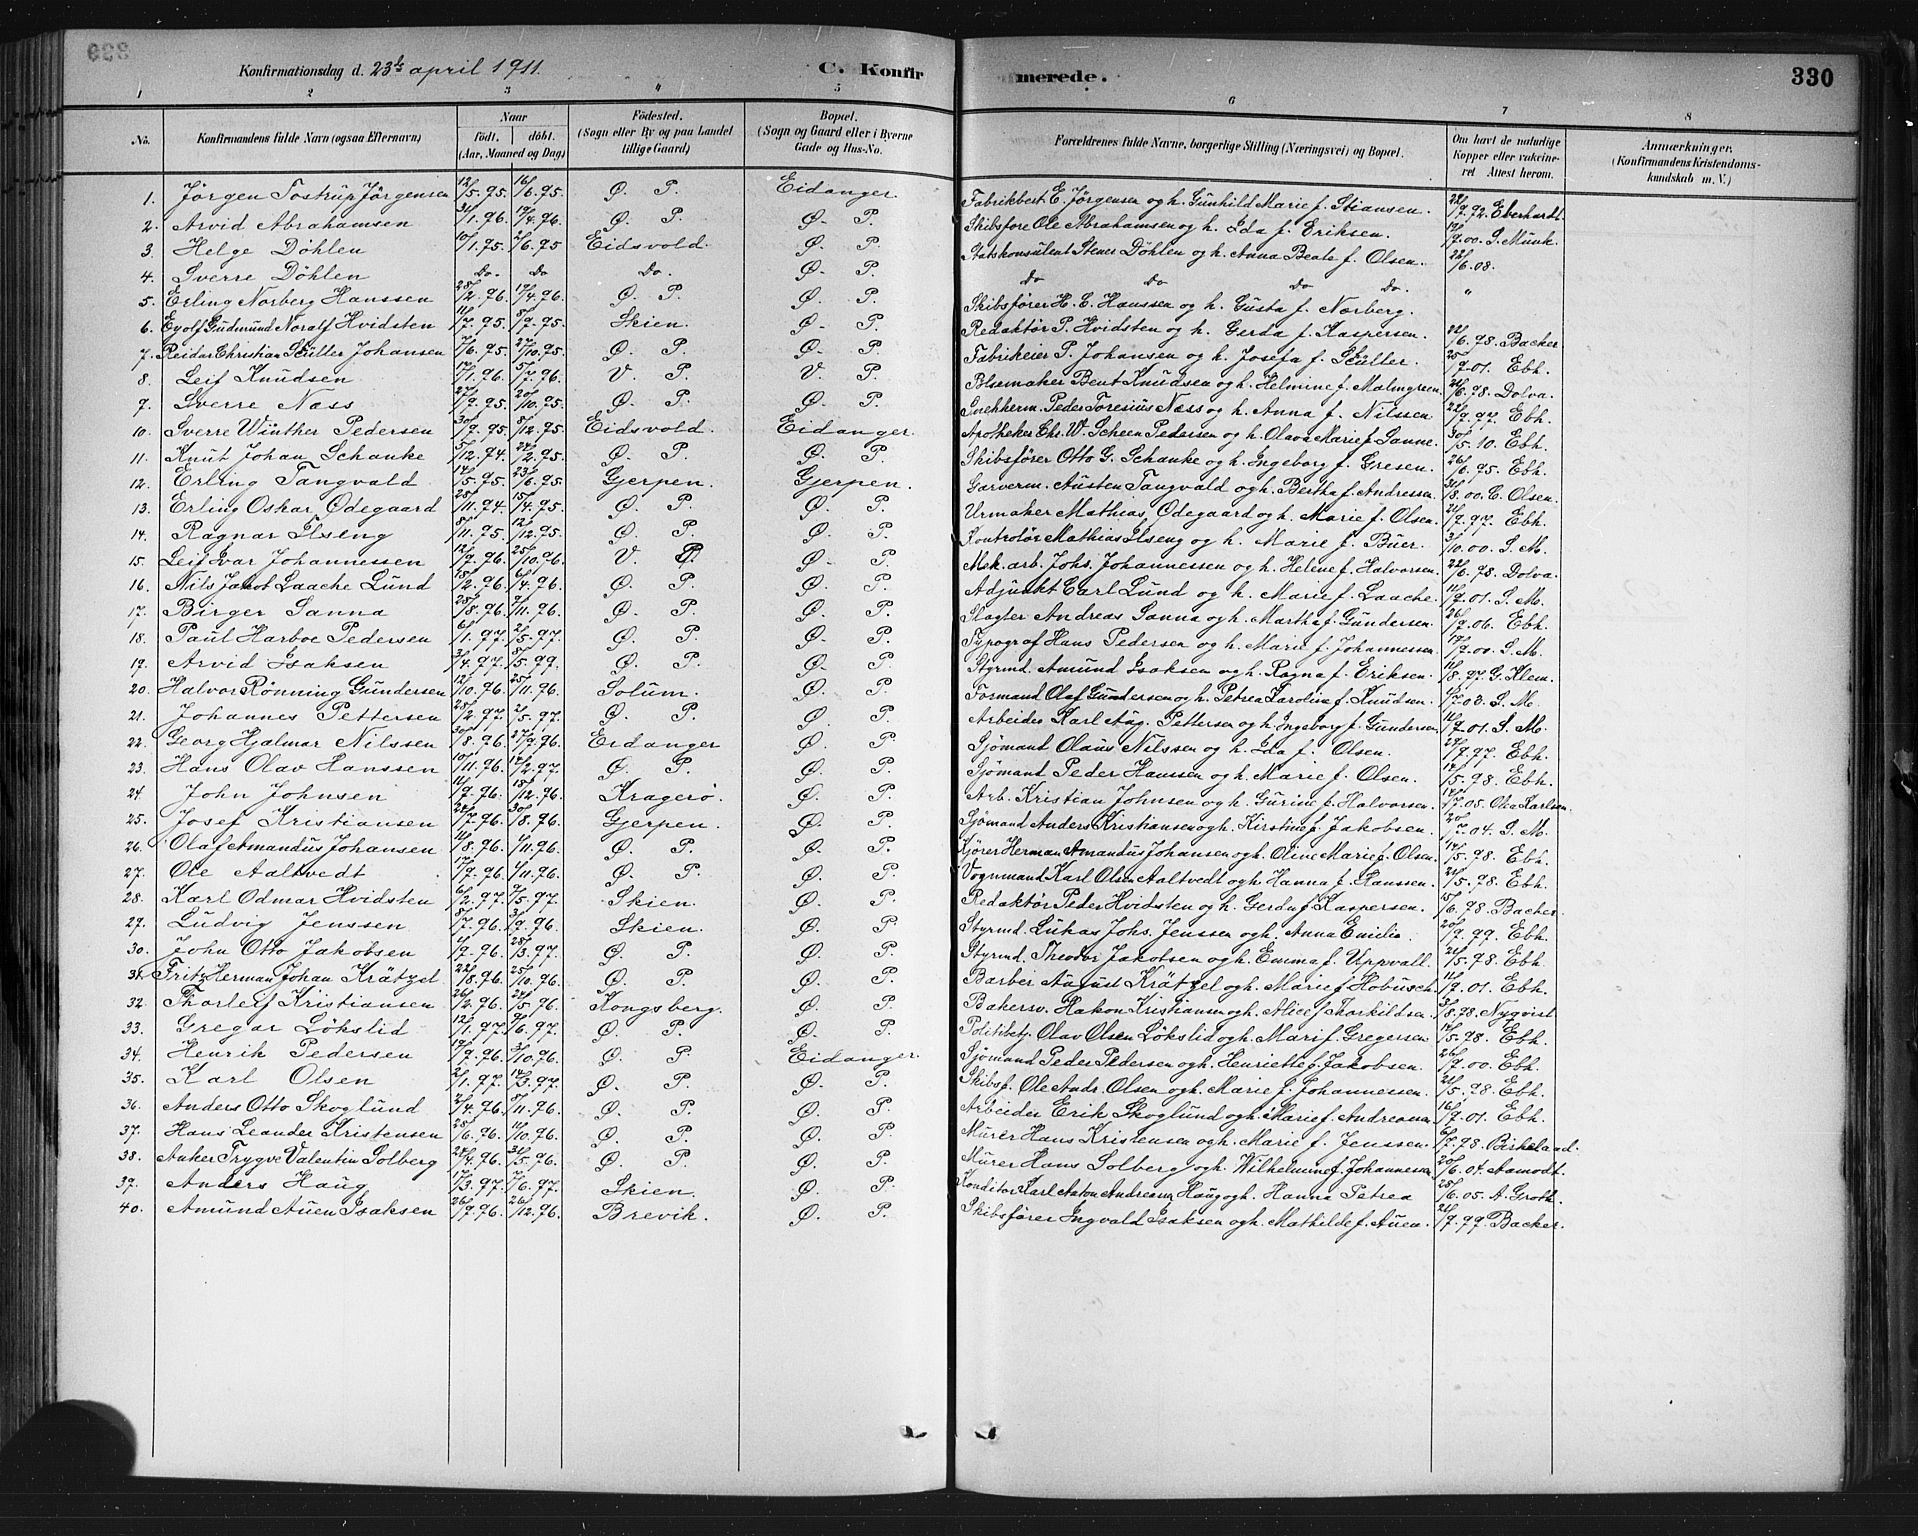 Konfirmationsdag d. 23de april 1911. C. Konfirmerede. 330
1 2 3 4 5 6 7 8
No. Konfirmandens fulde Navn (ogsaa Efternavn) Naar födt. döbt. (Aar, Maaned og Dag) Födested. (Sogn eller By og paa Landet tillige Gaard) Bopæl. (Sogn og Gaard eller i Byerne Gade og Hus-No. Forældrenes fulde Navne, borgerlige Stilling (Næringsvei) og Bopæl. Om havt de naturlige Kopper eller vaccineret Attest herom. Anmærkninger. (Konfirmandens Kristendomskundskab m. V.)
1. Jørgen Tostrup Jörgensen 12/5.95. 16/6.95. Ø. P. Eidanger. Fabrikbest. E. Jørgensen og h. Gunhild Marie f. Stiansen. 22/9.92. Eberhardt
2. Arvid Abrahamsen 31/1.96. 19/4.96. Ø. P. Ø. P. Skibsföre Ole Abrahamsen og h. Ida f. Eriksen. 19/9.00. S. Munk.
3. Helge Döhlen 10/1.95. 2/6.95 Eidsvold. Ø. P. Statskonsulent Stener Döhlen og h. Anna Beate f. Olsen. 22/6.08.
4. Sverre Döhlen Do Do Do. Ø. P. Do Do Do Do. "
5. Erling Norberg Hanssen 28/2.96. 19/4.96. Ø. P. Ø. P. Skibsförer H. E. Hanssen og h. Gusta f. Norberg.
6. Eyolf Gudmund Noralf Hvidsten 11/7.95. 8/9.95. Skien. Ø. P. Redaktör P. Hvidsten og h. Gerda f. Kaspersen. 22/6.98. Backer
7. Reidar Christian Stüller Johansen 7/6.95. 27/10.95. Ø. P. Ø. P. Fabrikeier P. Johansen og h. Josefa f. Stüller. 25/9.01. Ebh.
8. Leif Knudsen 17/1.96. 5/7.96. V. P. V. P. Pölsemaker Bent Knudsen og h. Helmine f. Malmgren. 21/6.98. Dolva.
9. Sverre Næss 27/9.95. 20/10.95. Ø. P. Ø. P. Snekkerm. Peder Toresius Næss og h. Anna f. Nilssen 22/9.97. Ebh.
10. Sverre Winther Pedersen 30/9.95. 8/12.95. Eidsvold. Eidanger. Apotheker Chr. W. Scheen Pedersen og h. Olava Marie f. Sanne. 30/5.10. Ebh.
11. Knut Johan Schanke 5/12.94. 24/2.95. Ø. P. Ø. P. Skibsförer Otto G. Schanke og h. Ingeborg f. Gresen. 26/6.95. Ebh.
12. Erling Tangvald 14/5.95. 23/6.95. Gjerpen. Gjerpen. Garverm. Austen Tangvald og h. Bertha f. Andressen. 31/8.00. C. Olsen.
13. Erling Oskar Ödegaard 25/11.94. 15/4.95. Ø. P. Ø. P. Urmaker Mathias Ödegaard og h. Marie f. Olsen. 21/9.97. Ebh.
14. Ragnar Ilseng 8/11.95. 12/12.95. Ø. P. Ø. P. Kontrolör Mathias Ilseng og h. Marie f. Büer. 3/10.00. S. M.
15. Leif Ivar Johannessen 12/9.96. 25/10.96. V. P. Ø. P. Mek. arb. Johs. Johannessen og h. Helene f. Halvorsen. 22/6.98. Dolva.
16. Nils Jakob Laache Lund 18/2.96. 6/4.96. Ø. P. Ø. P. Adjunkt Carl Lund og h. Marie f. Laache. 11/9.01. S. M.
17. Birger Sanna 28/8.96. 9/11.96. Ø. P. Ø. P. Slagter Andreas Sanna og h. Martha f. Gundersen. 26/9.06. Ebh.
18. Paul Harboe Pedersen 6/1.97. 2/5.97. Ø. P. Ø. P. Typograf Hans Pedersen og h. Marie f. Johannessen 17/9.00. S. M.
19. Arvid Isaksen 3/4.97. 8/5.99. Ø. P. Ø. P. Styrmd. Amund Isaksen og h. Ragna f. Eriksen. 11/8.97. G. Klem.
20. Halvor Rønning Gundersen 12/10.96. 25/11.96. Solum. Ø. P. Formand Olaf Gundersen og h. Petrea Karoline f. Knudsen. 1/7.03. S. M.
21. Johannes Pettersen 28/2.97. 2/5.97. Ø. P. Ø. P. Arbeider Karl Aug. Pettersen og h. Ingeborg f. Gundersen 11/9.01. S. M.
22. Georg Hjalmar Nilssen 30/8.96. 27/9.96. Eidanger Ø. P. Sjömand Olaus Nilssen og h. Ida f. Olsen. 24/9.97. Ebh.
23. Hans Olav Hanssen 10/11.96. 14/2.97. Ø. P. Ø. P. Sjömand Peder Hanssen og h. Marie f. Olsen. 14/5.98. Ebh.
24. John Johnsen 11/9.96. 18/12.96. Kragerö. Ø. P. Arb. Kristian Johnsen og h. Gurine f. Halvorsen. 14/7.05. Ole Karlsen.
25. Josef Kristiansen 24/7.96. 30/8.96. Gjerpen. Ø. P. Sjömand Anders Kristiansen og h. Kirstine f. Jakobsen. 20/7.04. S. M.
26. Olaf Amandus Johansen 11/8.96. 1/11.96. Ø. P. Ø. P. Kjörer Herman Amandus Johansen og h. Oline Marie f. Olsen. 14/5.98. Ebh.
27. Ole Aaltvedt 17/9.96. 1/11.96. Ø. P. Ø. P. Vognmand Karl Olsen Aaltvedt og h. Hanna f. Hanssen. 21/5.98. Ebh.
28. Karl Odmar Hvidsten 6/2.97. 9/5.97. Skien. Ø. P. Redaktör Peder Hvidsten og h. Gerda f. Kaspersen. 15/6.98. Backer.
29. Ludvig Jenssen 8/7.96. 3/9.96. Skien. Ø. P. Styrmd. Lukas Johs. Jenssen og h. Anna Emilie. 20/9.99. Ebh.
30. John Otto Jakobsen 4/9.96. 28/3.97. Ø. P. Ø. P. Styrmd. Theodor Jakobsen og h. Emma f. Uppvall. 21/5.98. Ebh.
31. Fritz Herman Johan Krätzel 22/8.96. 25/10.96. Ø. P. Ø. P. Barber August Krätzel og h. Marie f. Hobusch. 11/9.01. Ebh.
32. Thorleif Kristiansen 26/2.96. 24/5.96. Kongsberg. Ø. P. Bakersv. Hakon Kristiansen og h. Alice f. Thorkildsen. 3/8.98. Nyqvist
33. Gregar Lökslid 12/1.97. 9/6.97. Ø. P. Ø. P. Politibetj. Olav Olsen Lökslid og h. Mari f. Gregersen. 14/5.98. Ebh.
34. Henrik Pedersen 19/9.96. 31/10.96. Ø. P. Eidanger. Sjömand Peder Pedersen og h. Henriette f. Jakobsen. 26/9.00. Ebh.
35. Karl Olsen 2/1.97. 14/3.97. Ø. P. Ø. P. Skibsf. Ole Andr. Olsen og h. Marie f. Johannessen. 21/5.98. Ebh.
36. Anders Otto Skoglund 2/4.96. 8/11.96. Ø. P. Ø. P. Arbeider Erik Skoglund og h. Marie f. Andreasen 16/9.01. Ebh.
37. Hans Leander Kristensen 28/6.96. 11/10.96. Ø. P. Ø. P. Murer Hans Kristensen og h. Marie f. Jenssen. 6/7.98. Birkeland.
38. Anker Trygve Valentin Solberg 24/4.96. 31/5.96. Ø. P. Ø. P. Murer Hans Solberg og h. Wilhelmine f. Johannessen 20/6.04. Aamodt.
39. Anders Haug 17/3.97. 7/6.97. Skien. Ø. P. Konditor Karl Anton Andreasen Haug og h. Hanna Petrea 28/6.05. A. Groth.
40. Amund Auen Isaksen 26/9.96. 26/12.96. Brevik. Ø. P. Skibsförer Ingvald Isaksen og h. Mathilde f. Auen. 21/9.99. Backer.